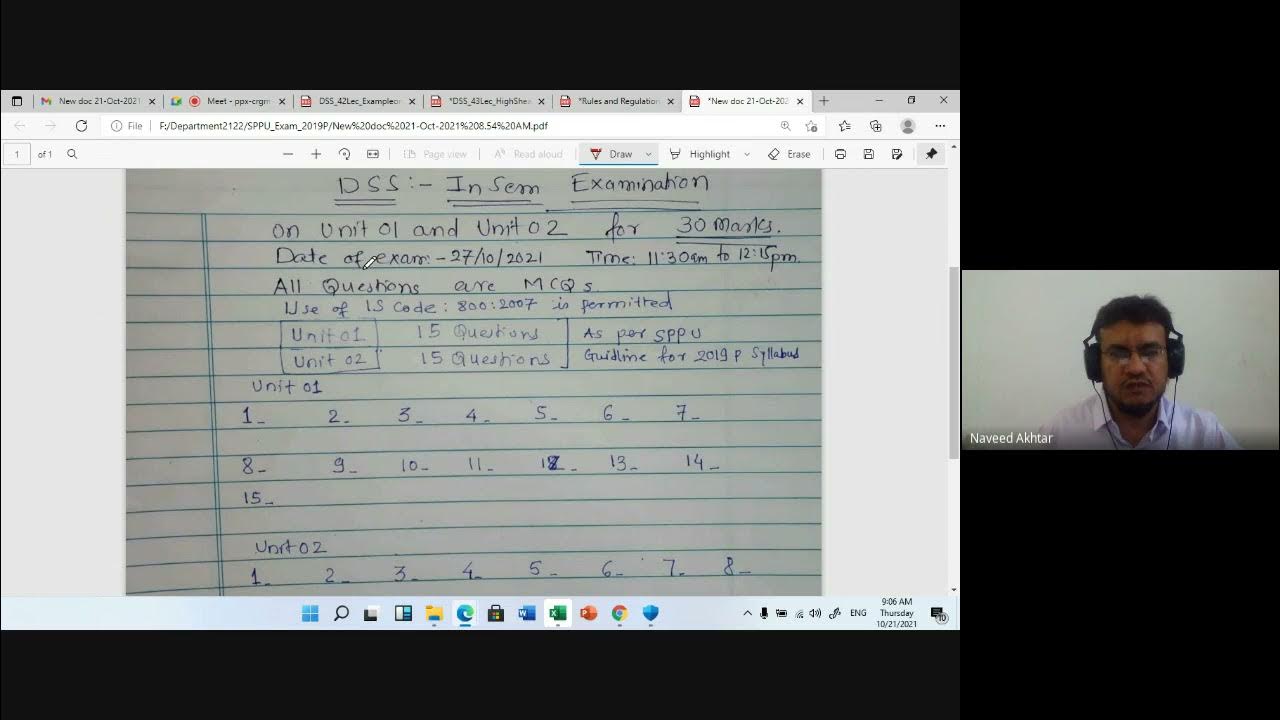 New doc 21-Oct-2021
Meet - ppx-crgm
DSS_42Lec_Exampleon
*DSS_43Lec_HighShea
*Rules and Regulation
*New doc 21-Oct-202
File
F:/Department2122/SPPU_Exam_2019P/New%20doc%2021-Oct-2021%208.54%20AM.pdf
1 of 1
Page view
Read aloud
Draw
Highlight
Erase
DSS:- In Sem Examination
on Unit 01 and Unit 02 for 30 Marks.
Date of exam:- 27/10/2021 Time: 11:30am to 12:15pm.
All Questions are MCQs.
Use of IS Code: 800:2007 is permitted
Unit 01 15 Questions As per SPPU
Unit 02 15 Questions Guidline for 2019 P Syllabus
Unit 01
1- 2- 3- 4- 5- 6- 7-
8- 9- 10- 11- 12- 13- 14-
15-
Unit 02
1- 2- 3- 4- 5- 6- 7- 8-
ENG
9:06 AM
Thursday
10/21/2021
10
Naveed Akhtar